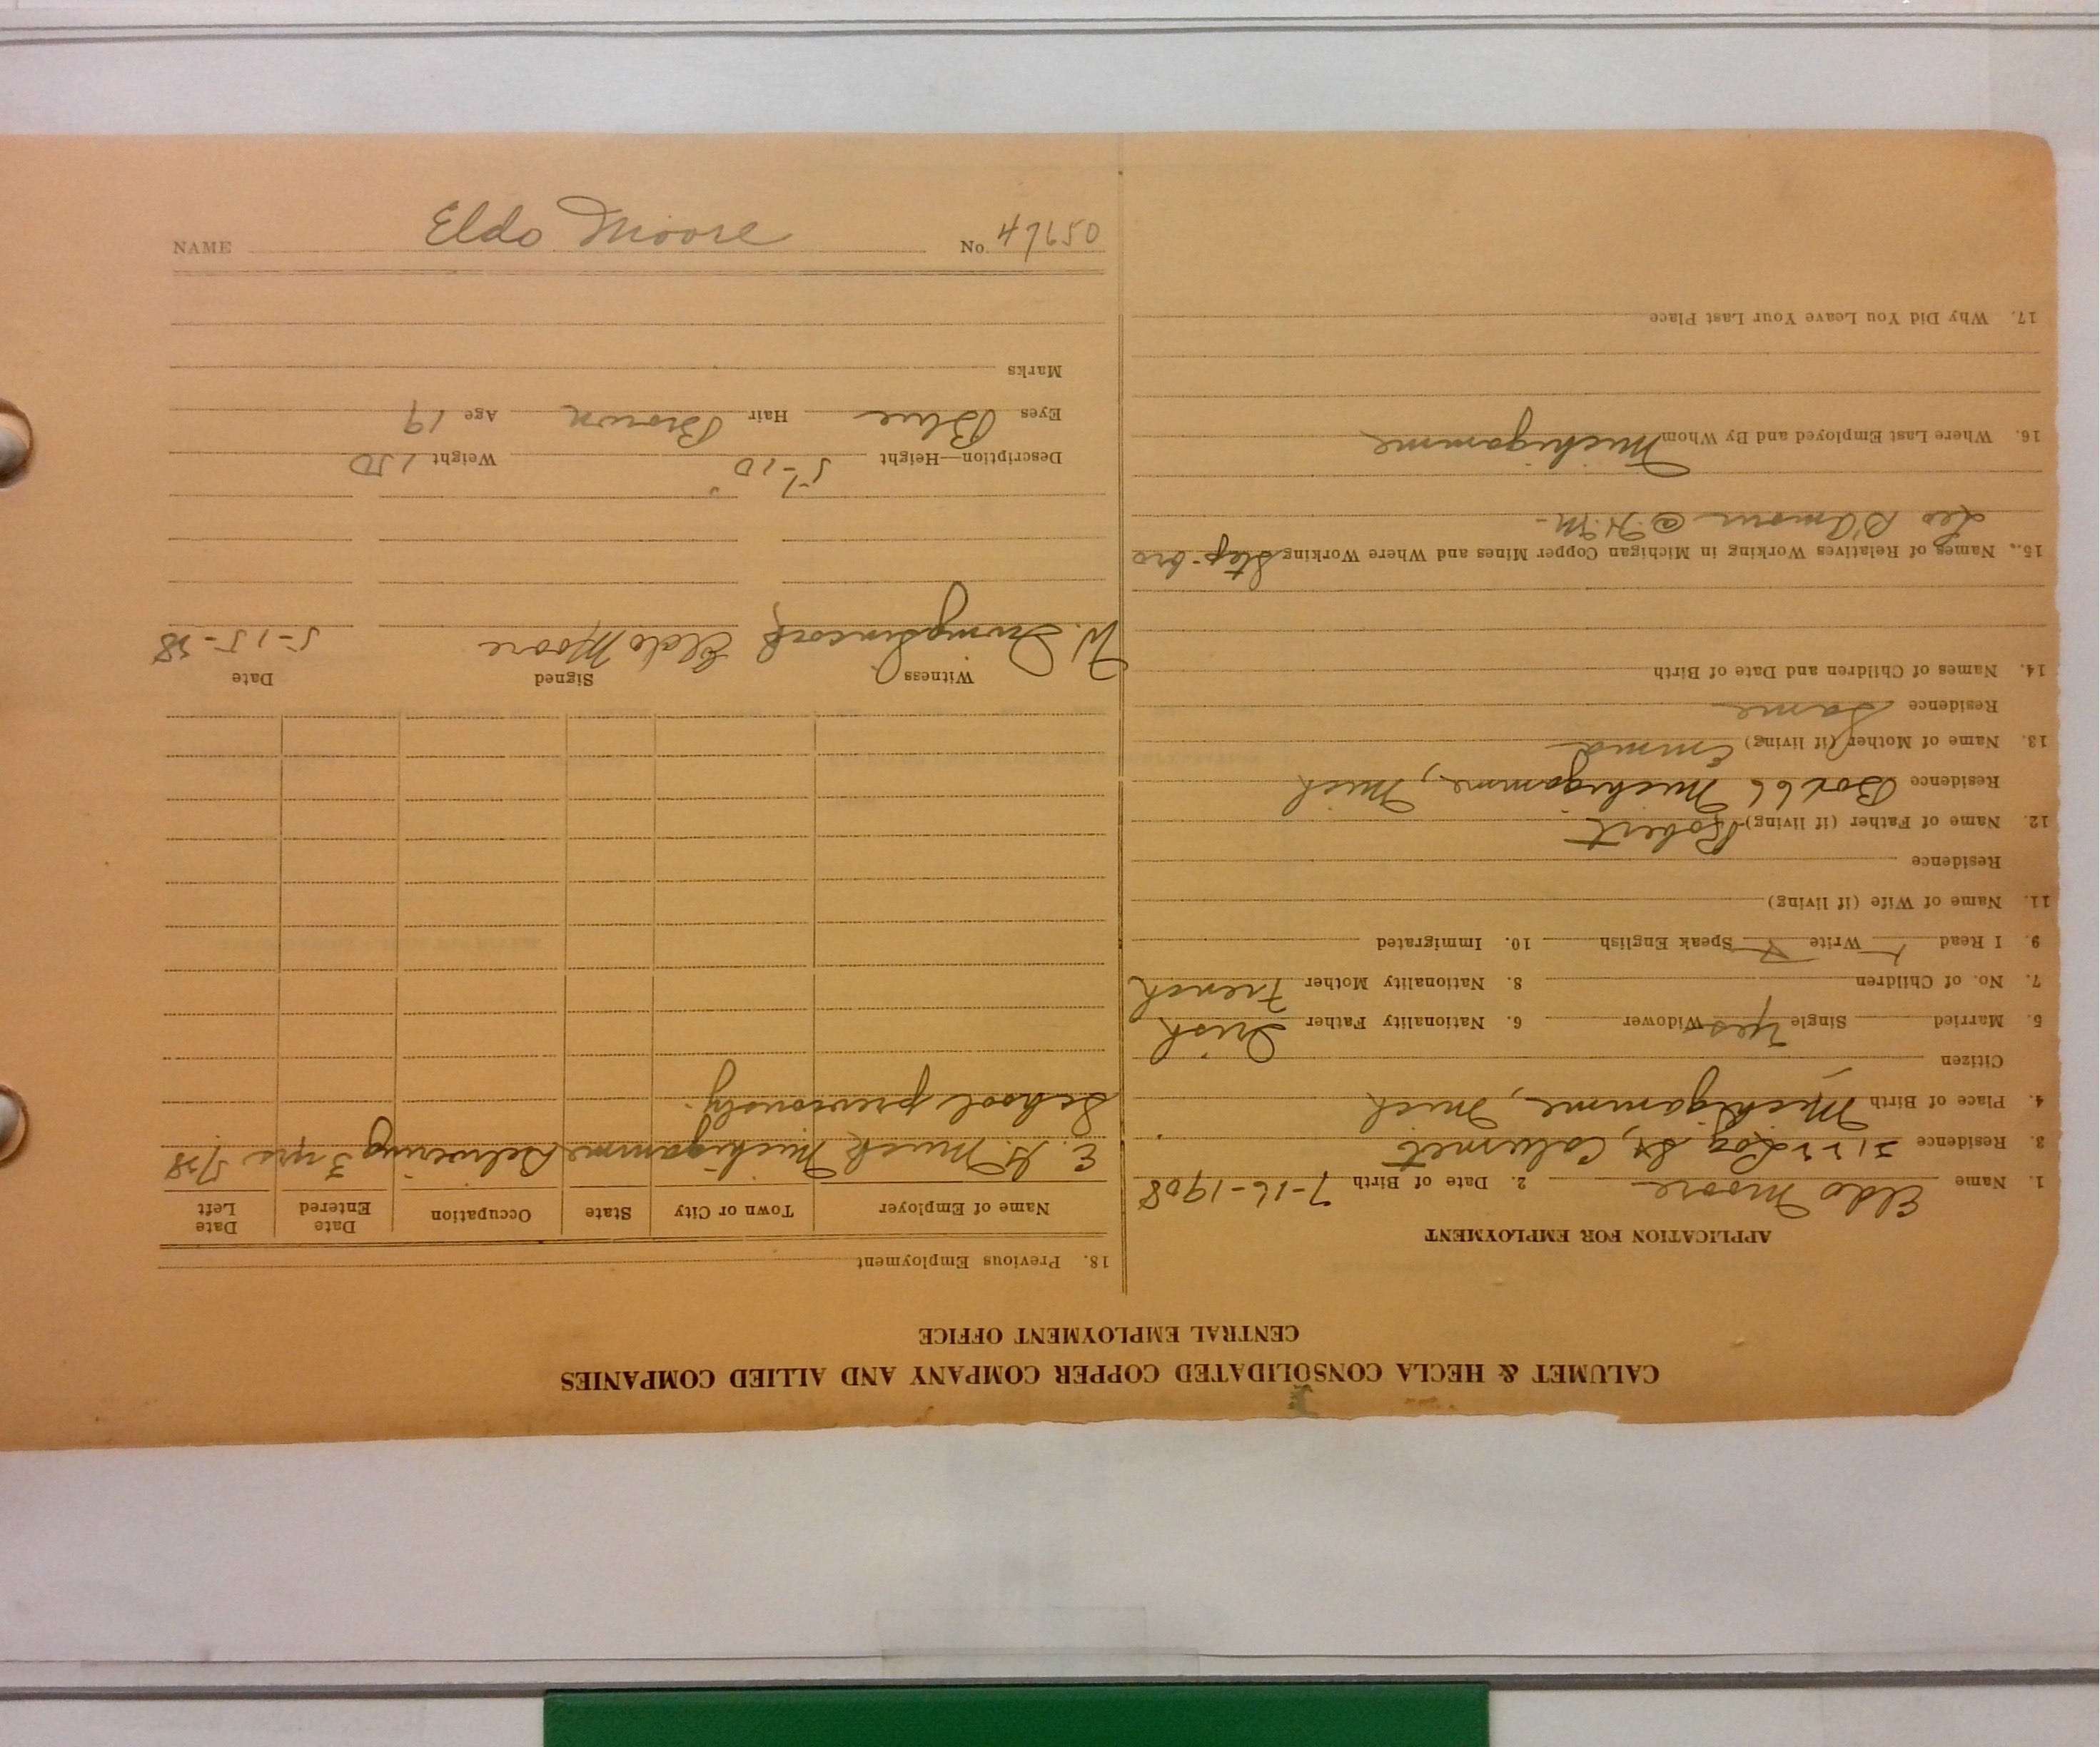 CALUMET & HECLA CONSOLIDATED COPPER COMPANY AND ALLIED COMPANIES
CENTRAL EMPLOYMENT OFFICE
APPLICATION FOR EMPLOYMENT
1. Name Eldo Moore 2. Date of Birth 7-16-1908
3. Residence Log St, Calumet
4. Place of Birth Michigamme, Mich
Citizen
5. Married Single Yes Widower 6. Nationality Father Irish
7. No. of Children 8. Nationality Mother French
9. I Read Write Speak English 10. Immigrated
11. Name of Wife (if living)
Residence
12. Name of Father (if living) Robert
Residence Box 66 Michigamme, Mich
13. Name of Mother (if living) Emma
Residence Same
14. Names of Children and Date of Birth
15. Names of Relatives Working in Michigan Copper Mines and Where Working Step-bro
Leo D'Amour @
16. Where Last Employed and By Whom Michigamme
17. Why Did You Leave Your Last Place
18. Previous Employment
Name of Employer Town or City State Occupation Date Entered Date Left
E. G. Muck Michigamme Delivering 3 yrs 5/28
School previously.
Witness Signed Date
W. Eldo Moore 5-15-28
Description—Height 5-10 Weight 150
Eyes Blue Hair Brown Age 19
Marks
NAME Eldo Moore No. 47650